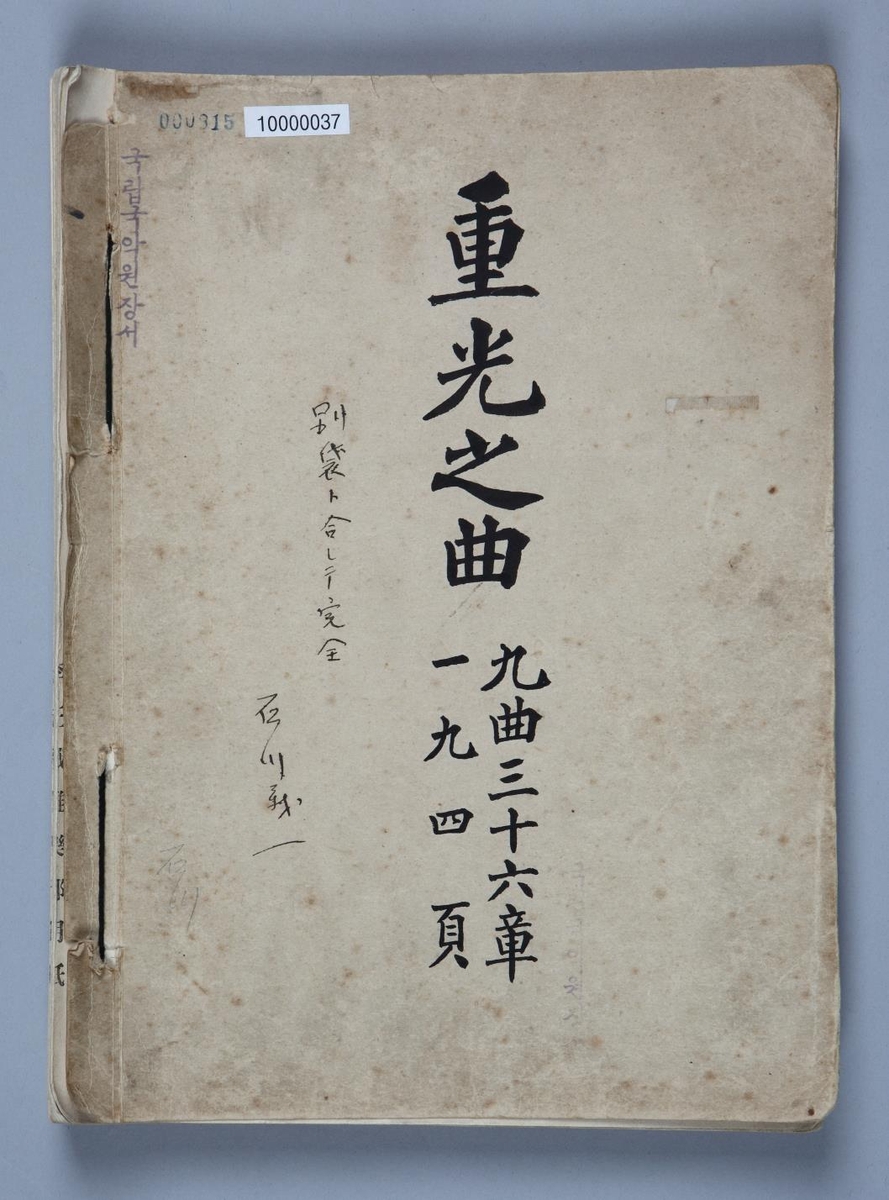 000315
10000037
국립국악원장서
重光之曲
九曲三十六章
一九四頁
別袋ト合シテ完全
石川義一
石川